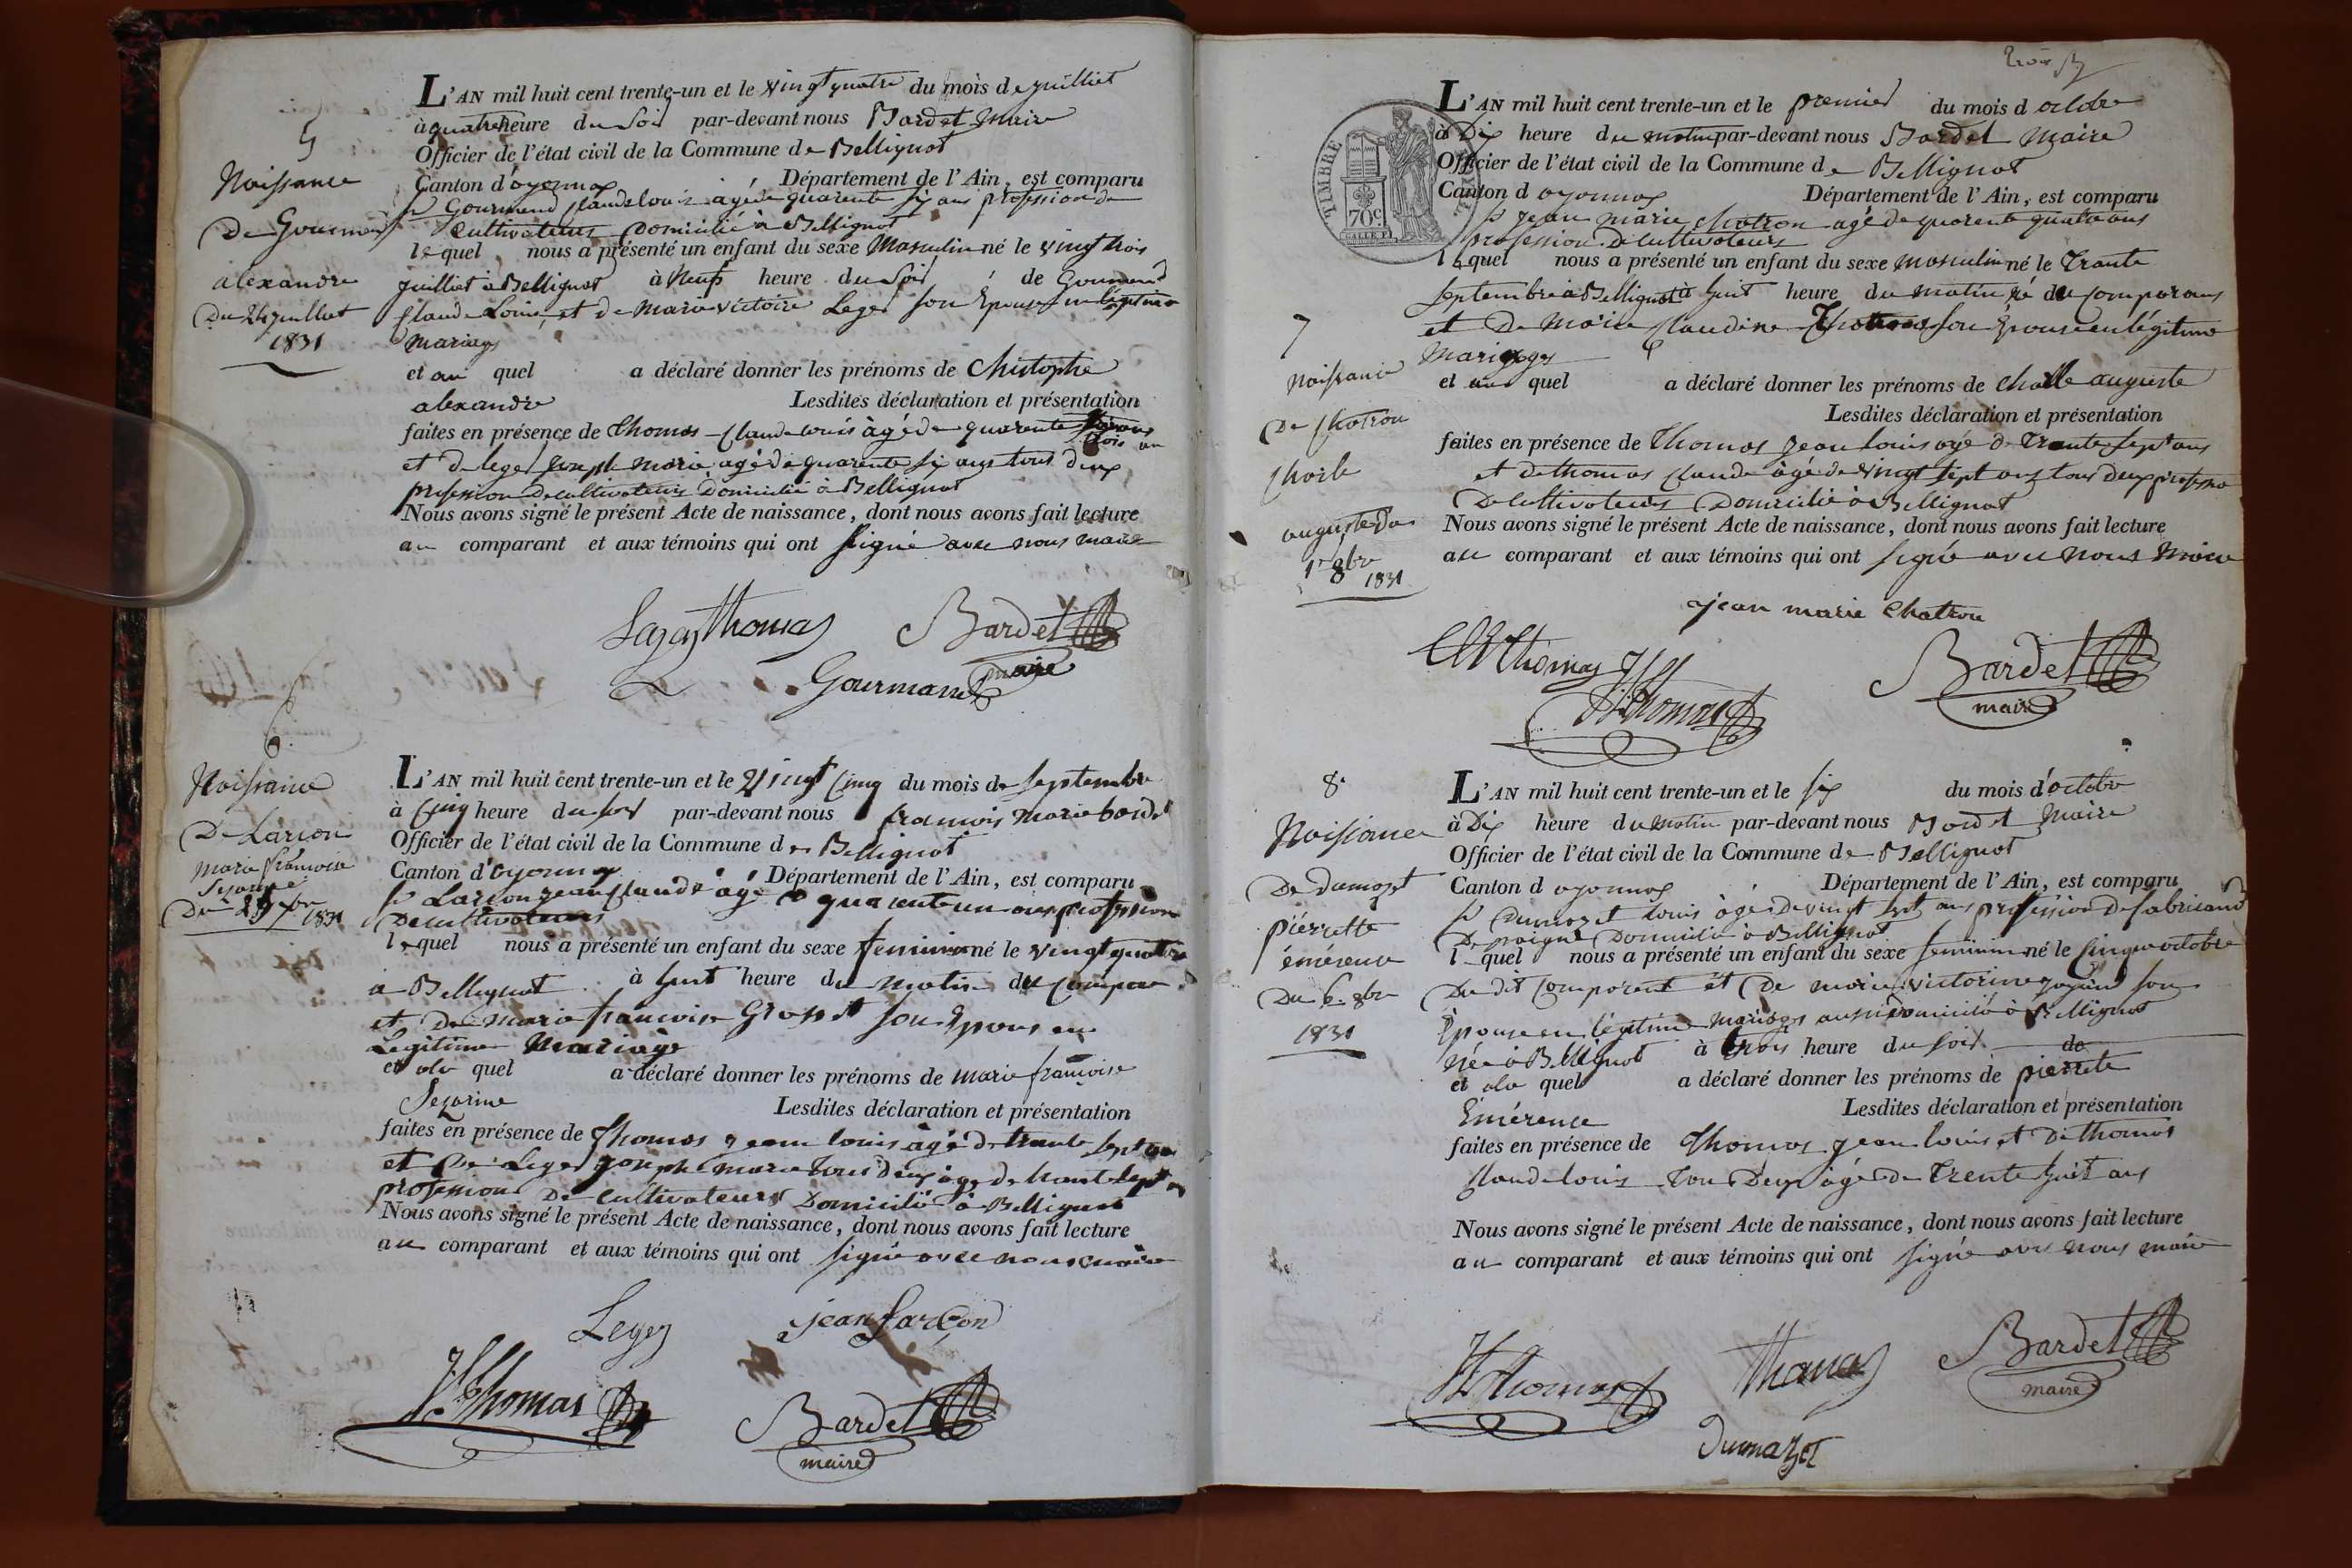 5
Naissance
De Gourmand
alexandre
Du 24 juillet
1831
L'AN mil huit cent trente-un et le vingt quatre du mois de juilliet
à quatre heure du Soir par-devant nous Bardet Maire
Officier de l'état civil de la Commune de Bellignat
Canton d'oyonnax Département de l'Ain, est comparu
Sr Gourmend Claude louis agé de quarente six ans profession de
Cultivateurs Domicilié à Bellignat
lequel nous a présenté un enfant du sexe Masculin né le vingt trois
juilliet à Bellignat à Neuf heure du Soir de Gourmend
Claude Louis et de Marie victoire Leger son Epouse en légitime
Mariage
et au quel a déclaré donner les prénoms de Christophe
alexandre Lesdites déclaration et présentation
faites en présence de Thomas Claude louis âgé de quarente trois an
et de leger Joseph Marie agé de quarente six ans tous deux
profession de cultivateurs Domicilié à Bellignat
Nous avons signé le présent Acte de naissance, dont nous avons fait lecture
au comparant et aux témoins qui ont signé avec nous maire
Legey Thomas Bardet
maire
Gourmand
6
Naissance
De Larçon
Marie francoise
Sezarine
Du 25 7bre 1831
L'AN mil huit cent trente-un et le Vingt Cinq du mois de Septembre
à Cinq heure du soir par-devant nous francois Marie bardet
Officier de l'état civil de la Commune de Bellignat
Canton d'Oyonnax Département de l'Ain, est comparu
Sr Larçon jean Claude âgé de quarente un ans profession
De cultivateurs
lequel nous a présenté un enfant du sexe feminin né le vingt quatre
a Bellignat à huit heure du matin du Compar
et De Marie francoise Grosset son Epouse en
Legitime Mariage
et ala quel a déclaré donner les prénoms de Marie francoise
Sezarine Lesdites déclaration et présentation
faites en présence de Thomas jean louis âgé de trante sept ans
et De Leger Joseph Marie tous deux âgé de trante sept an
profession De cultivateurs Domicilié à Bellignat
Nous avons signé le présent Acte de naissance, dont nous avons fait lecture
au comparant et aux témoins qui ont signé avec nous maire
Legey jean Larçon
JL Thomas Bardet
maire
TIMBRE
70c.
L'AN mil huit cent trente-un et le premier du mois d octobre
à Dix heure du matin par-devant nous Bardet Maire
Officier de l'état civil de la Commune de Bellignat
Canton d oyonnax Département de l'Ain, est comparu
Sr Jean Marie Chatron agé de quarente quatre ans
profession De cultivateurs
lequel nous a présenté un enfant du sexe masculin né le Trante
Septembre à Bellignat à huit heure du matin né du comparans
et De Marie Claudine Thomas son Epouse en légitime
Mariage
et au quel a déclaré donner les prénoms de Charle auguste
Lesdites déclaration et présentation
faites en présence de Thomas Jean Louis agé de Trante sept ans
et de thomas Claude âgé de vingt sept ans tous deux profession
De cultivateurs Domicilié à Bellignat
Nous avons signé le présent Acte de naissance, dont nous avons fait lecture
au comparant et aux témoins qui ont signé avec nous Maire
7
Naissance
De Chatron
Charle
auguste Du
1er 8bre 1831
jean marie Chatron
Thomas
JL Thomas
Bardet
maire
8.
Naissance
De Dumozet
pierrette
émérence
Du 6. 8bre
1831
L'AN mil huit cent trente-un et le six du mois d'octobre
à Dix heure du Matin par-devant nous Bardet Maire
Officier de l'état civil de la Commune de Bellignat
Canton d oyonnax Département de l'Ain, est comparu
Sr Dumozet louis âgé De vingt sept ans profession De fabricand
De peigne Domicilié à Bellignat
l quel nous a présenté un enfant du sexe feminin né le Cinque octobre
Du dit Comparent et De Marie victorine son
Epouse en légitime Mariage aussi domicilié à Bellignat
née à Bellignat à trois heure du soir de
et ala quel a déclaré donner les prénoms de pierrete
Emérence Lesdites déclaration et présentation
faites en présence de Thomas Jean louis et De thomas
Claude louis Tou Deux âgé De Trente huit ans
Nous avons signé le présent Acte de naissance, dont nous avons fait lecture
au comparant et aux témoins qui ont signé avec nous maire
JL Thomas Thomas Bardet
maire
Dumazet